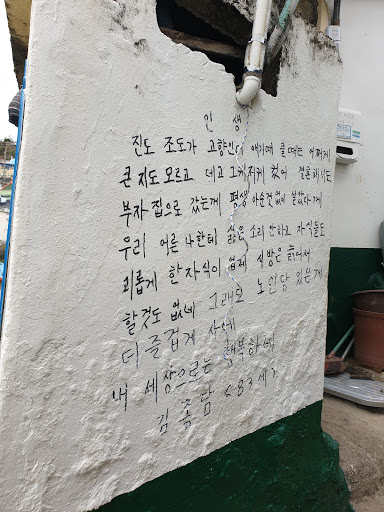 인 생
진도 조도가 고향인디 애기때 클때는 어찌게
큰지도 모르고 데고 그저게 컸어 결혼해서는
부자집으로 갔는게 평생 아순것없이 살았다게
우리 어른 나한테 싫은 소리 안하고 자식들도
괴롭게 한자식이 업제 시방은 늙어서
할것도 없네 그래도 노인당 있은게
더 즐겁게 사세
내 세상으로는 행복하세
김 흑 람 <83세>